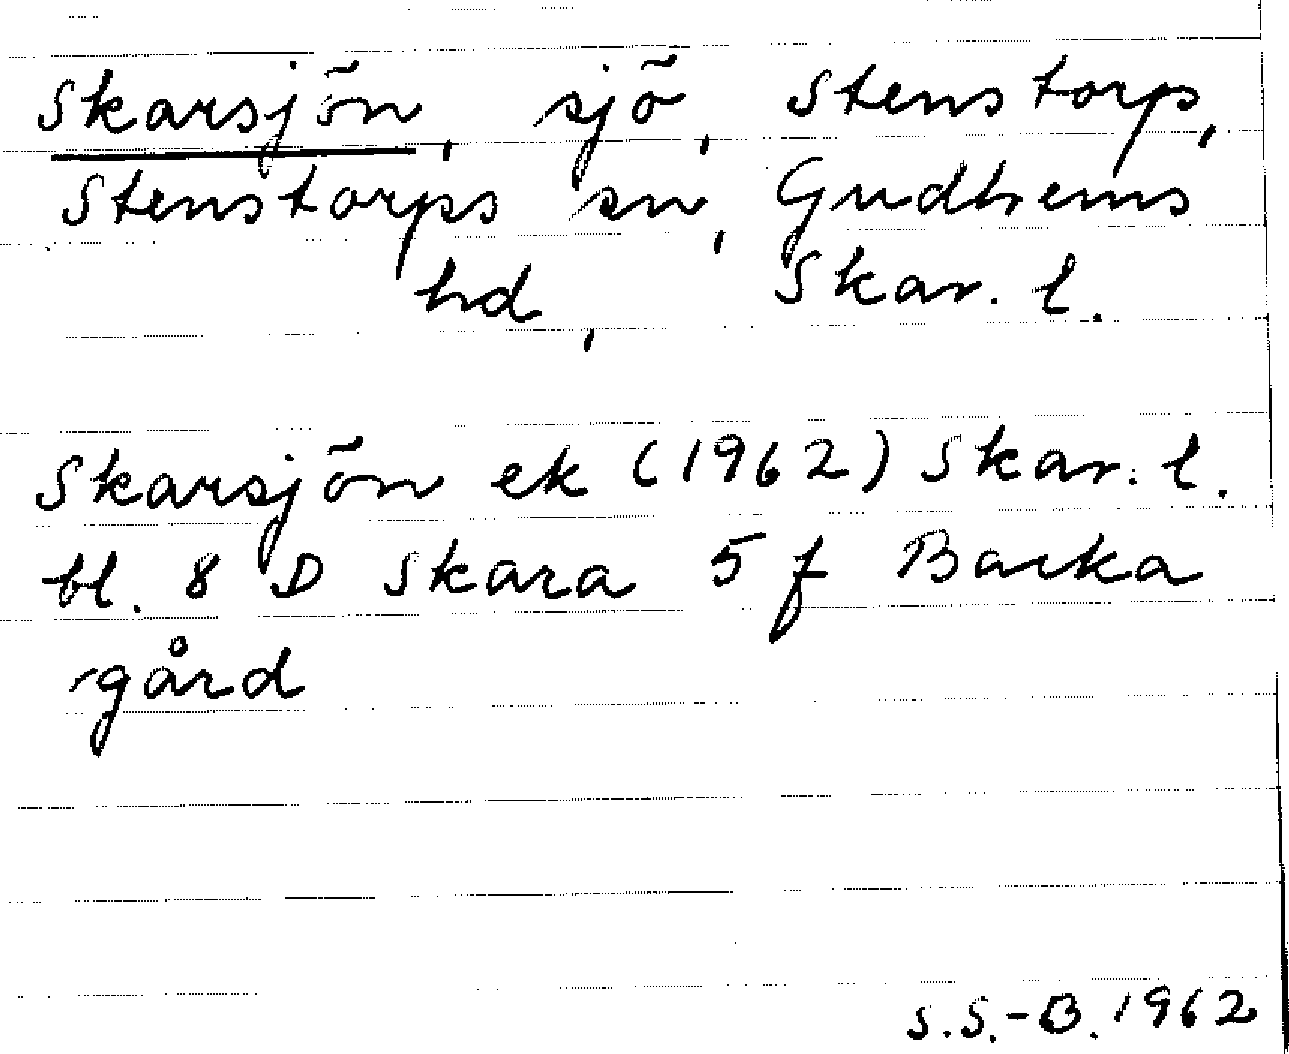 Skarsjön, sjö, Stenstorp,
Stenstorps sn, Gudhems
hd, Skar. l.
Skarsjön ek (1962) Skar. l.
bl. 8 D Skara 5 f Backa
-gård
S.S.-B. 1962